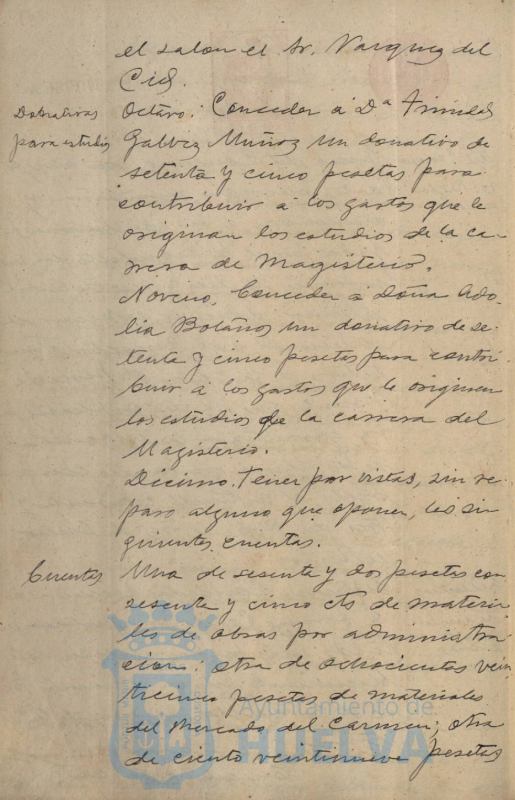 el salon el Sr. Vazquez del
Cid.
Donativos
para estudios
Octavo: Conceder á Dª Trinidad
Galvez Muñoz un donativo de
setenta y cinco pesetas para
contribuir á los gastos que le
originan los estudios de la ca-
rrera de Magisterio.
Noveno. Conceder á Doña Ado-
lia Bolaños un donativo de se-
tenta y cinco pesetas para contri
buir á los gastos que le originan
los estudios de la carrera del
Magisterio.
Décimo. Tener por vistas, sin re-
paro alguno que oponer, las si-
guientes cuentas.
Cuentas
Una de sesenta y dos pesetas con
sesenta y cinco cts de materia-
les de obras por administra-
cion; otra de ochocientas vein
ticinco pesetas de materiales
del Mercado del Carmen; otra
de ciento veintinueve pesetas
Ayuntamiento de
HUELVA